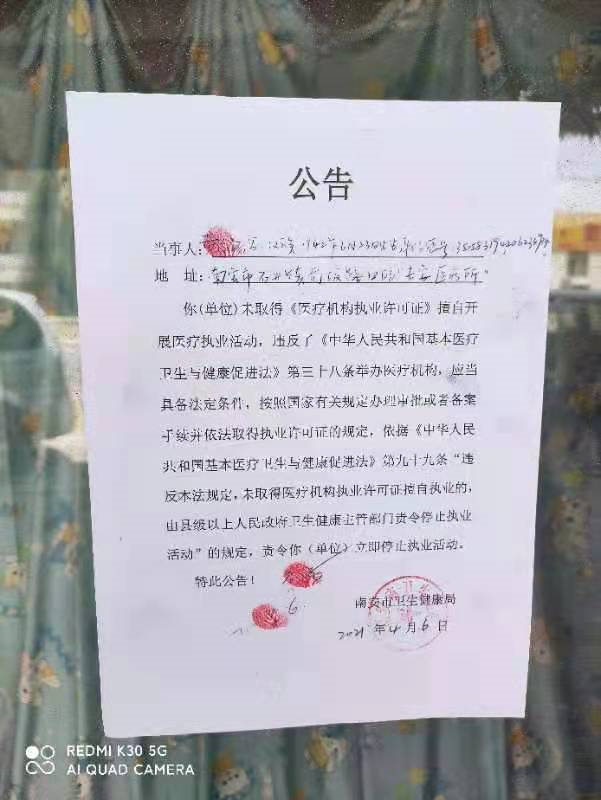 公告
当事人：
地 址：南安市
你（单位）未取得《医疗机构执业许可证》擅自开
展医疗执业活动，违反了《中华人民共和国基本医疗
卫生与健康促进法》第三十八条举办医疗机构，应当
具备法定条件，按照国家有关规定办理审批或者备案
手续并依法取得执业许可证的规定，依据《中华人民
共和国基本医疗卫生与健康促进法》第九十九条“违
反本法规定，未取得医疗机构执业许可证擅自执业的，
由县级以上人民政府卫生健康主管部门责令停止执业
活动”的规定，责令你（单位）立即停止执业活动。
特此公告！
南安市卫生健康局
2021 年 4 月 6 日
REDMI K30 5G
AI QUAD CAMERA